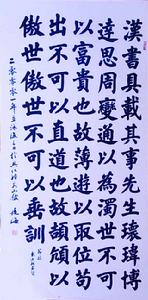 漢書具載其事先生瓌瑋博
達思周變通以為濁世不可
以富貴也故薄遊以取位苟
出不可以直道也故頡頏以
傲世傲世不可以垂訓
年